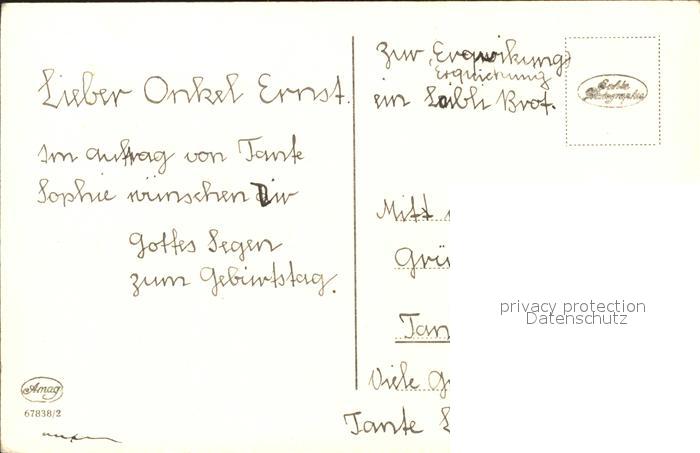 Lieber Onkel Ernst.
Im Auftrag von Tante
Sophie wünschen Dir
Gottes Segen
zum Geburtstag.
Amag
67838/2
zur "Erqwikung"
Erquickung
ein Laibli Brot.
Echte
Photographie
Mitt
Grü
Tan
Viele G
Tante
privacy protection
Datenschutz